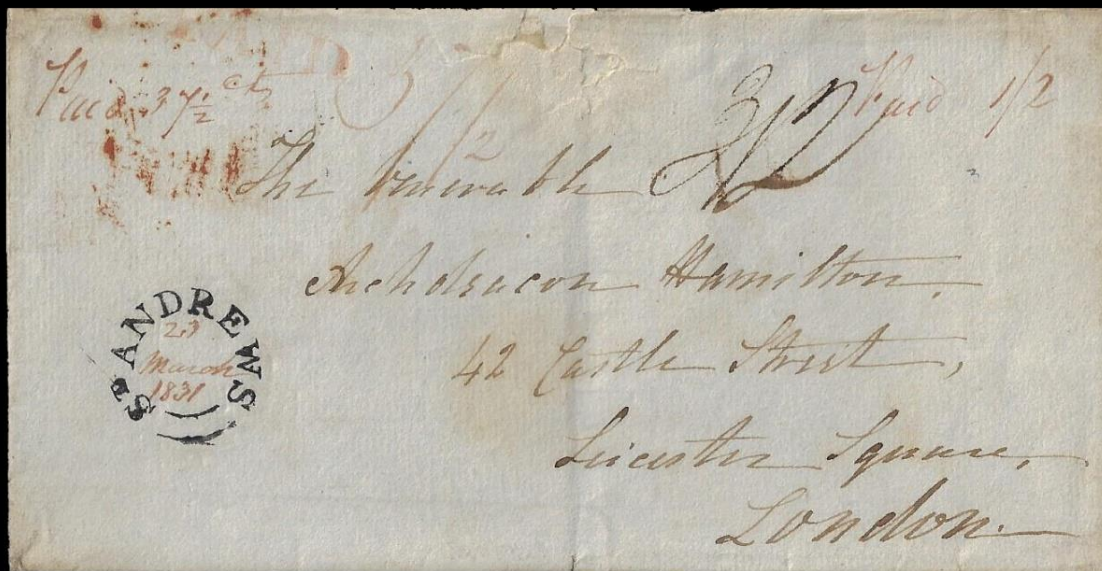 Paid 37½ cts
37½
3/2
Paid 1/2
The Venerable
Archdeacon Hamilton,
42 Castle Street,
Leicester Square,
London.
St ANDREWS
23
March
1831